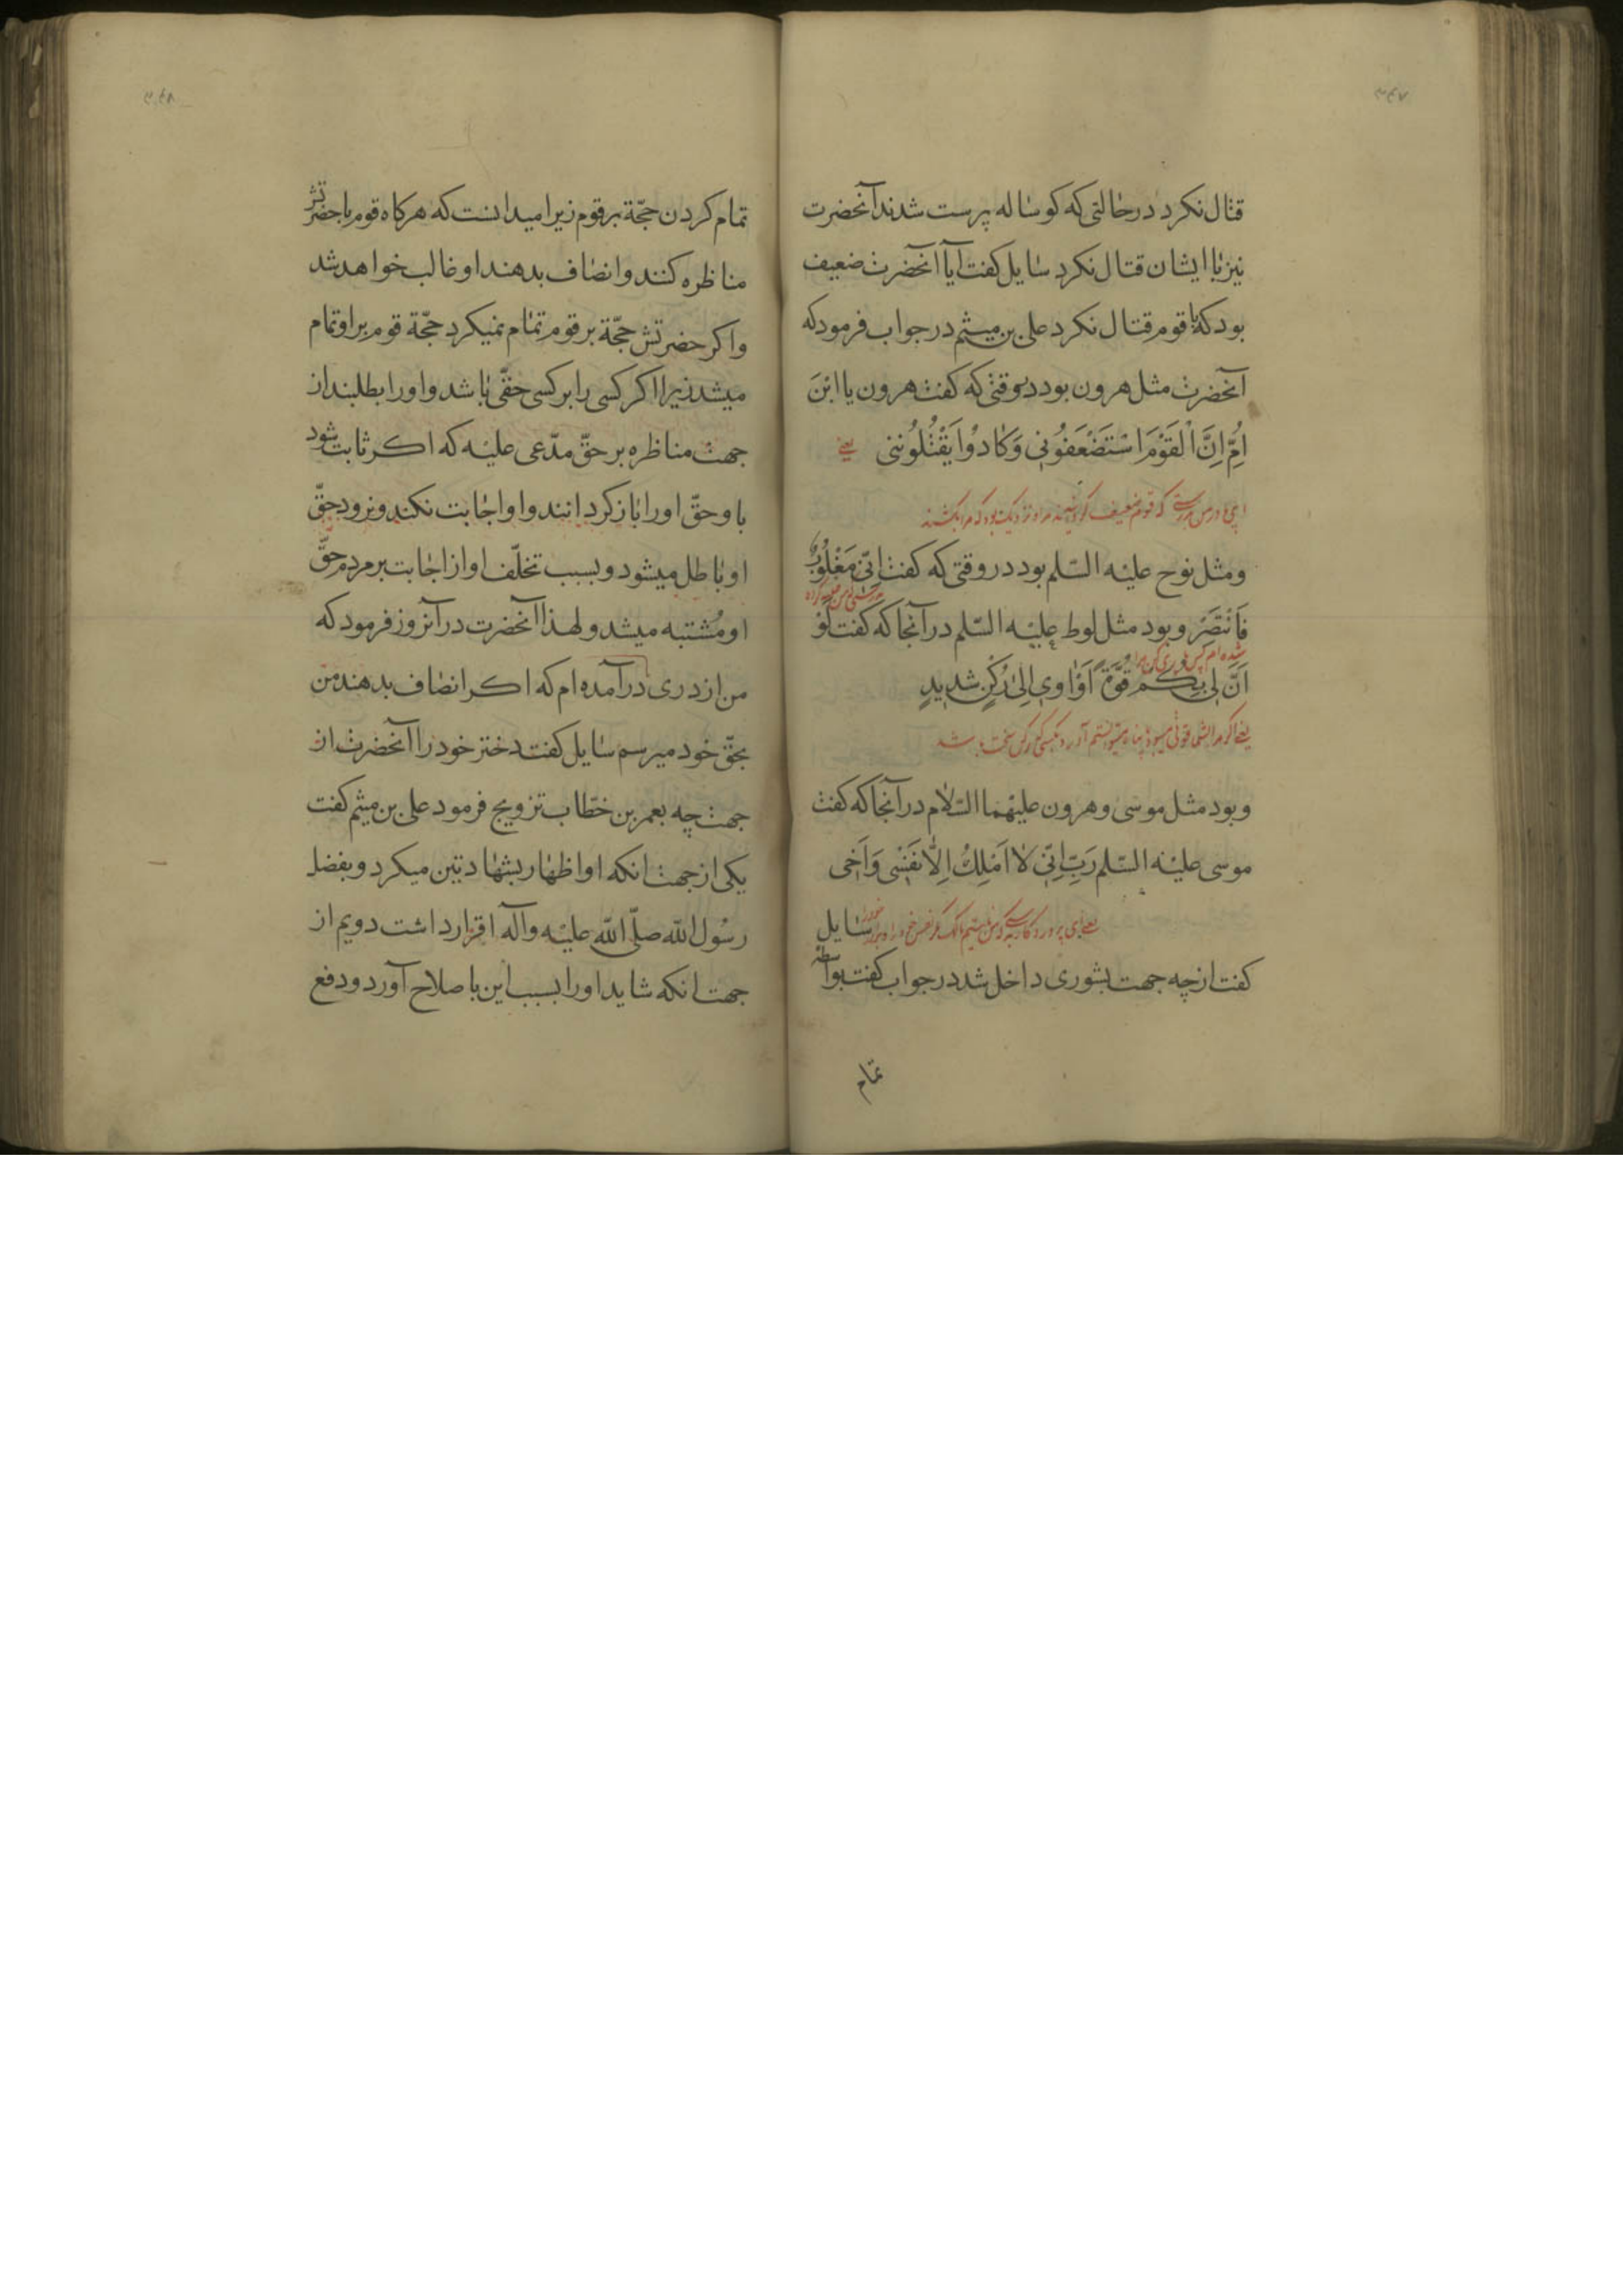 قتال نکرد در حالتی که کوساله پرست شدند آنحضرت
نیز با ایشان قتال نکرد سایل کفت آیا آنحضرت ضعیف
بود که با قوم قتال نکرد علی بن میثم در جواب فرمود که
آنحضرت مثل هرون بود در وقتی که کفت هرون یا ابْنَ
اُمِّ اِنَّ الْقَوْمَ اسْتَضْعَفُونِی وَکادُوا یَقْتُلُونَنی یعنی
که قوم ضعیف مرا و نزدیک بود که مرا بکشند
ومثل نوح علیه السّلم بود در وقتی که کفت اِنّی مَغْلُوبٌ
فَانْتَصِرْ وبود مثل لوط علیه السّلم در آنجا که کفت لَوْ
شده ام پس یاری کن مرا
اَنَّ لی بِکُمْ قُوَّةً اَوْ اوی اِلیٰ رُکْنٍ شَدیدٍ
یعنی اگر مرا بشما قوتی میبود یا پناه میتوانستم آورد بکسی که رکن سخت باشد
وبود مثل موسی وهرون علیهما السّلام در آنجا که کفت
موسی علیه السّلم رَبِّ اِنّی لا اَمْلِكُ اِلّا نَفْسی وَاَخی
یعنی ای پروردکار من بدرستیکه من نیستم مالک مکر نفس خود را و برادر خود را سایل
کفت از چه جهت بشوری داخل شد در جواب کفت بواسطه
تمام
تمام کردن حجّة بر قوم زیرا میدانست که هرکاه قوم با حضرتش
مناظره کنند وانصاف بدهند او غالب خواهد شد
واکر حضرتش حجّة بر قوم تمام نمیکرد حجّة قوم بر او تمام
میشد زیرا اکر کسی را بر کسی حقّی باشد واو را بطلبند از
جهت مناظره بر حقّ مدّعی علیه که اکر ثابت شود
با وحقّ او را باز کردانند واو اجابت نکند ونرود حقّ
او باطل میشود وبسبب تخلّف او از اجابت بر مردم حقّ
او مُشتبه میشد ولهذا آنحضرت در آنروز فرمود که
من از دری درآمده ام که اکر انصاف بدهند من
بحقّ خود میرسم سایل کفت دختر خود را آنحضرت از
جهت چه بعمر بن خطّاب تزویج فرمود علی بن میثم کفت
یکی از جهت انکه او اظهار بشهادتین میکرد وبفضل
رسُول اللّه صلّی اللّه علیه وآله اقرار داشت دویم از
جهت انکه شاید او را بسبب این باصلاح آورد ودفع